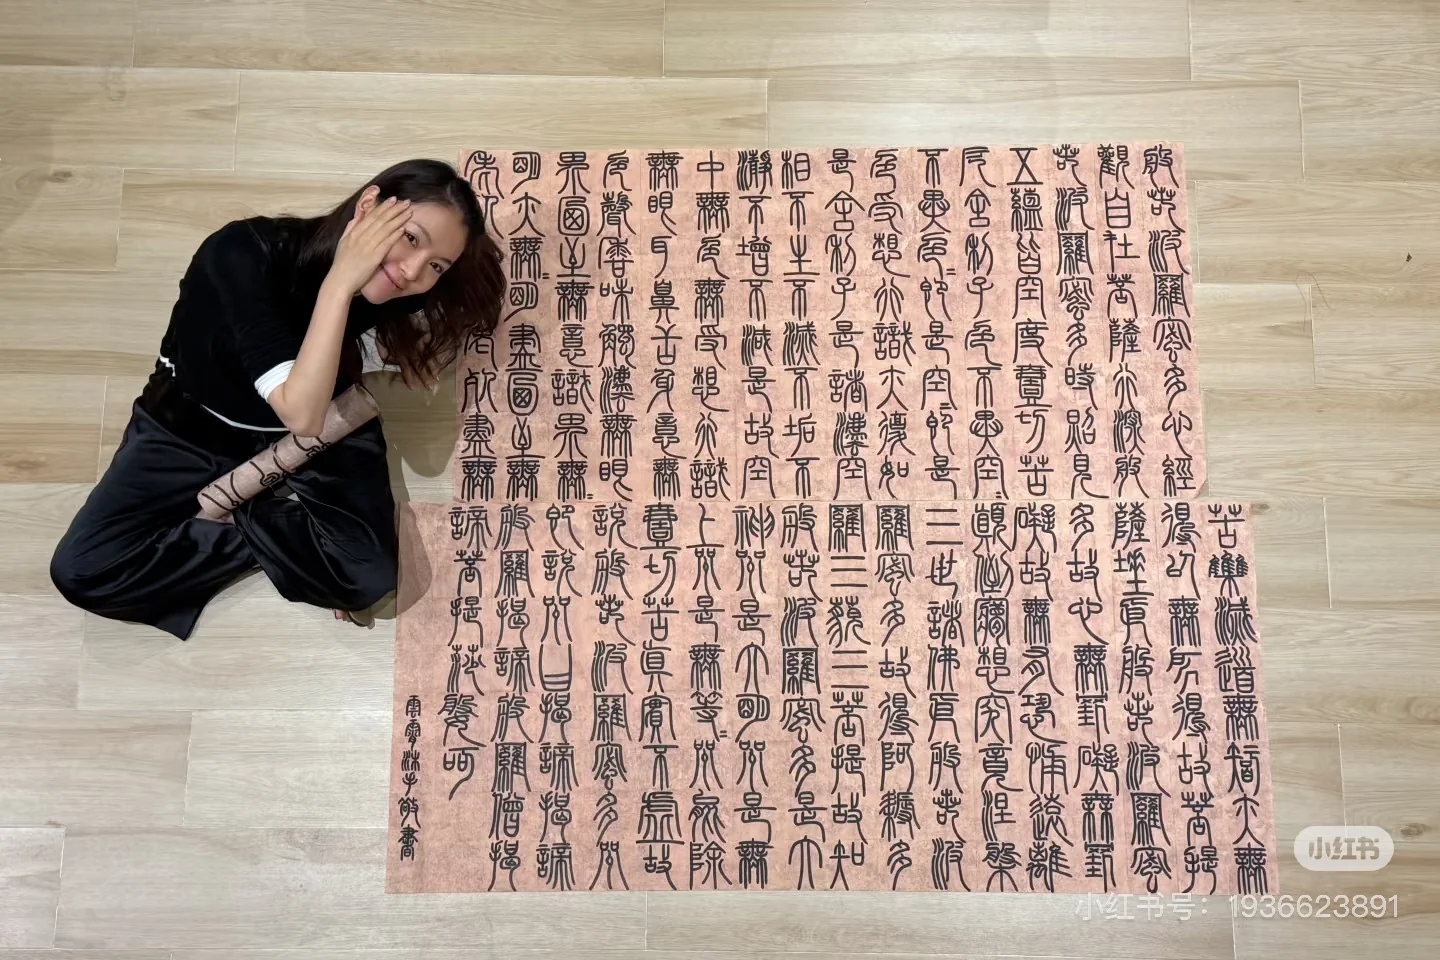 般若波羅蜜多心經
觀自在菩薩行深般
若波羅蜜多時照見
五蘊皆空度壹切苦
厄舍利子色不異空=
不異色=即是空=即是
色受想行識亦復如
是舍利子是諸灋空
相不生不滅不垢不
瀞不增不減是故空
中無色無受想行識
無眼耳鼻舌身意無
色聲香味觸灋無眼
界乃至無意識界無=
明亦無=明盡乃至無
老死老死盡無
苦集滅道無智亦無
得以無所得故菩提
薩埵依般若波羅蜜
多故心無罣礙無罣
礙故無有恐怖遠離
顛倒夢想究竟涅槃
三世諸佛依般若波
羅蜜多故得阿耨多
羅三藐三菩提故知
般若波羅蜜多是大
神咒是大明咒是無
上咒是無等=咒能除
壹切苦真實不虛故
說般若波羅蜜多咒
即說咒曰揭諦揭諦
般羅揭諦般羅僧揭
諦菩提莎婆呵
沐手敬書
小红书
小红书号：1936623891